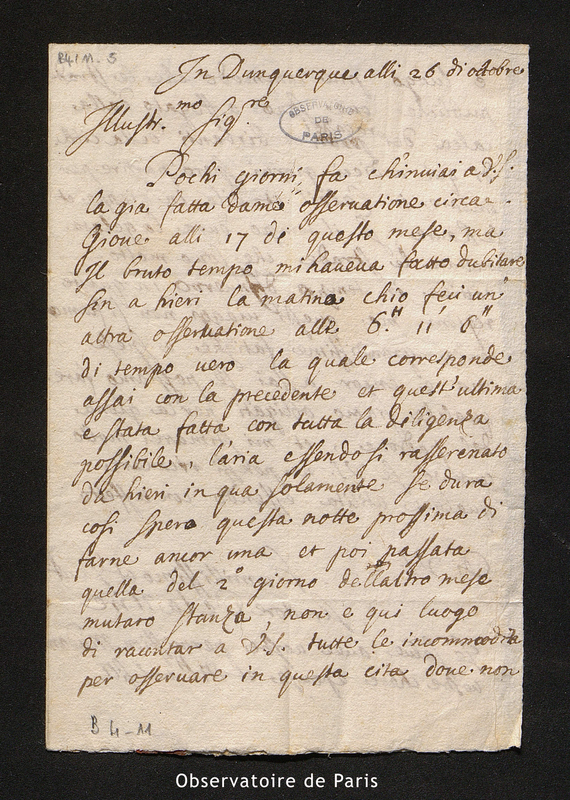 B4/M. 5
In Dunquerque alli 26 di octobre
Illustr.mo Sig.re
OBSERVATOIRE
DE
PARIS
Pochi giorni fa ch'inuiai a V.S.
la gia fatta dame osseruatione circa
Gioue alli 17 di questo mese, ma
Il bruto tempo mihaueua fatto dubitare
sin a hieri la matina chio feci un
altra osseruatione alle 6.H 11' 6"
di tempo uero la quale corresponde
assai con la precedente et quest'ultima
e stata fatta con tutta la diligenza
possibile, l'aria essendosi rasserenato
da hieri in qua solamente se dura
cosi spero questa notte prossima di
farne ancor una et poi passata
quella del 2º giorno dell'altro mese
mutaro stanza, non e qui luogo
di racontar a V.S. tutte le incommodita
per osseruare in questa cita doue non
B 4-11
Observatoire de Paris